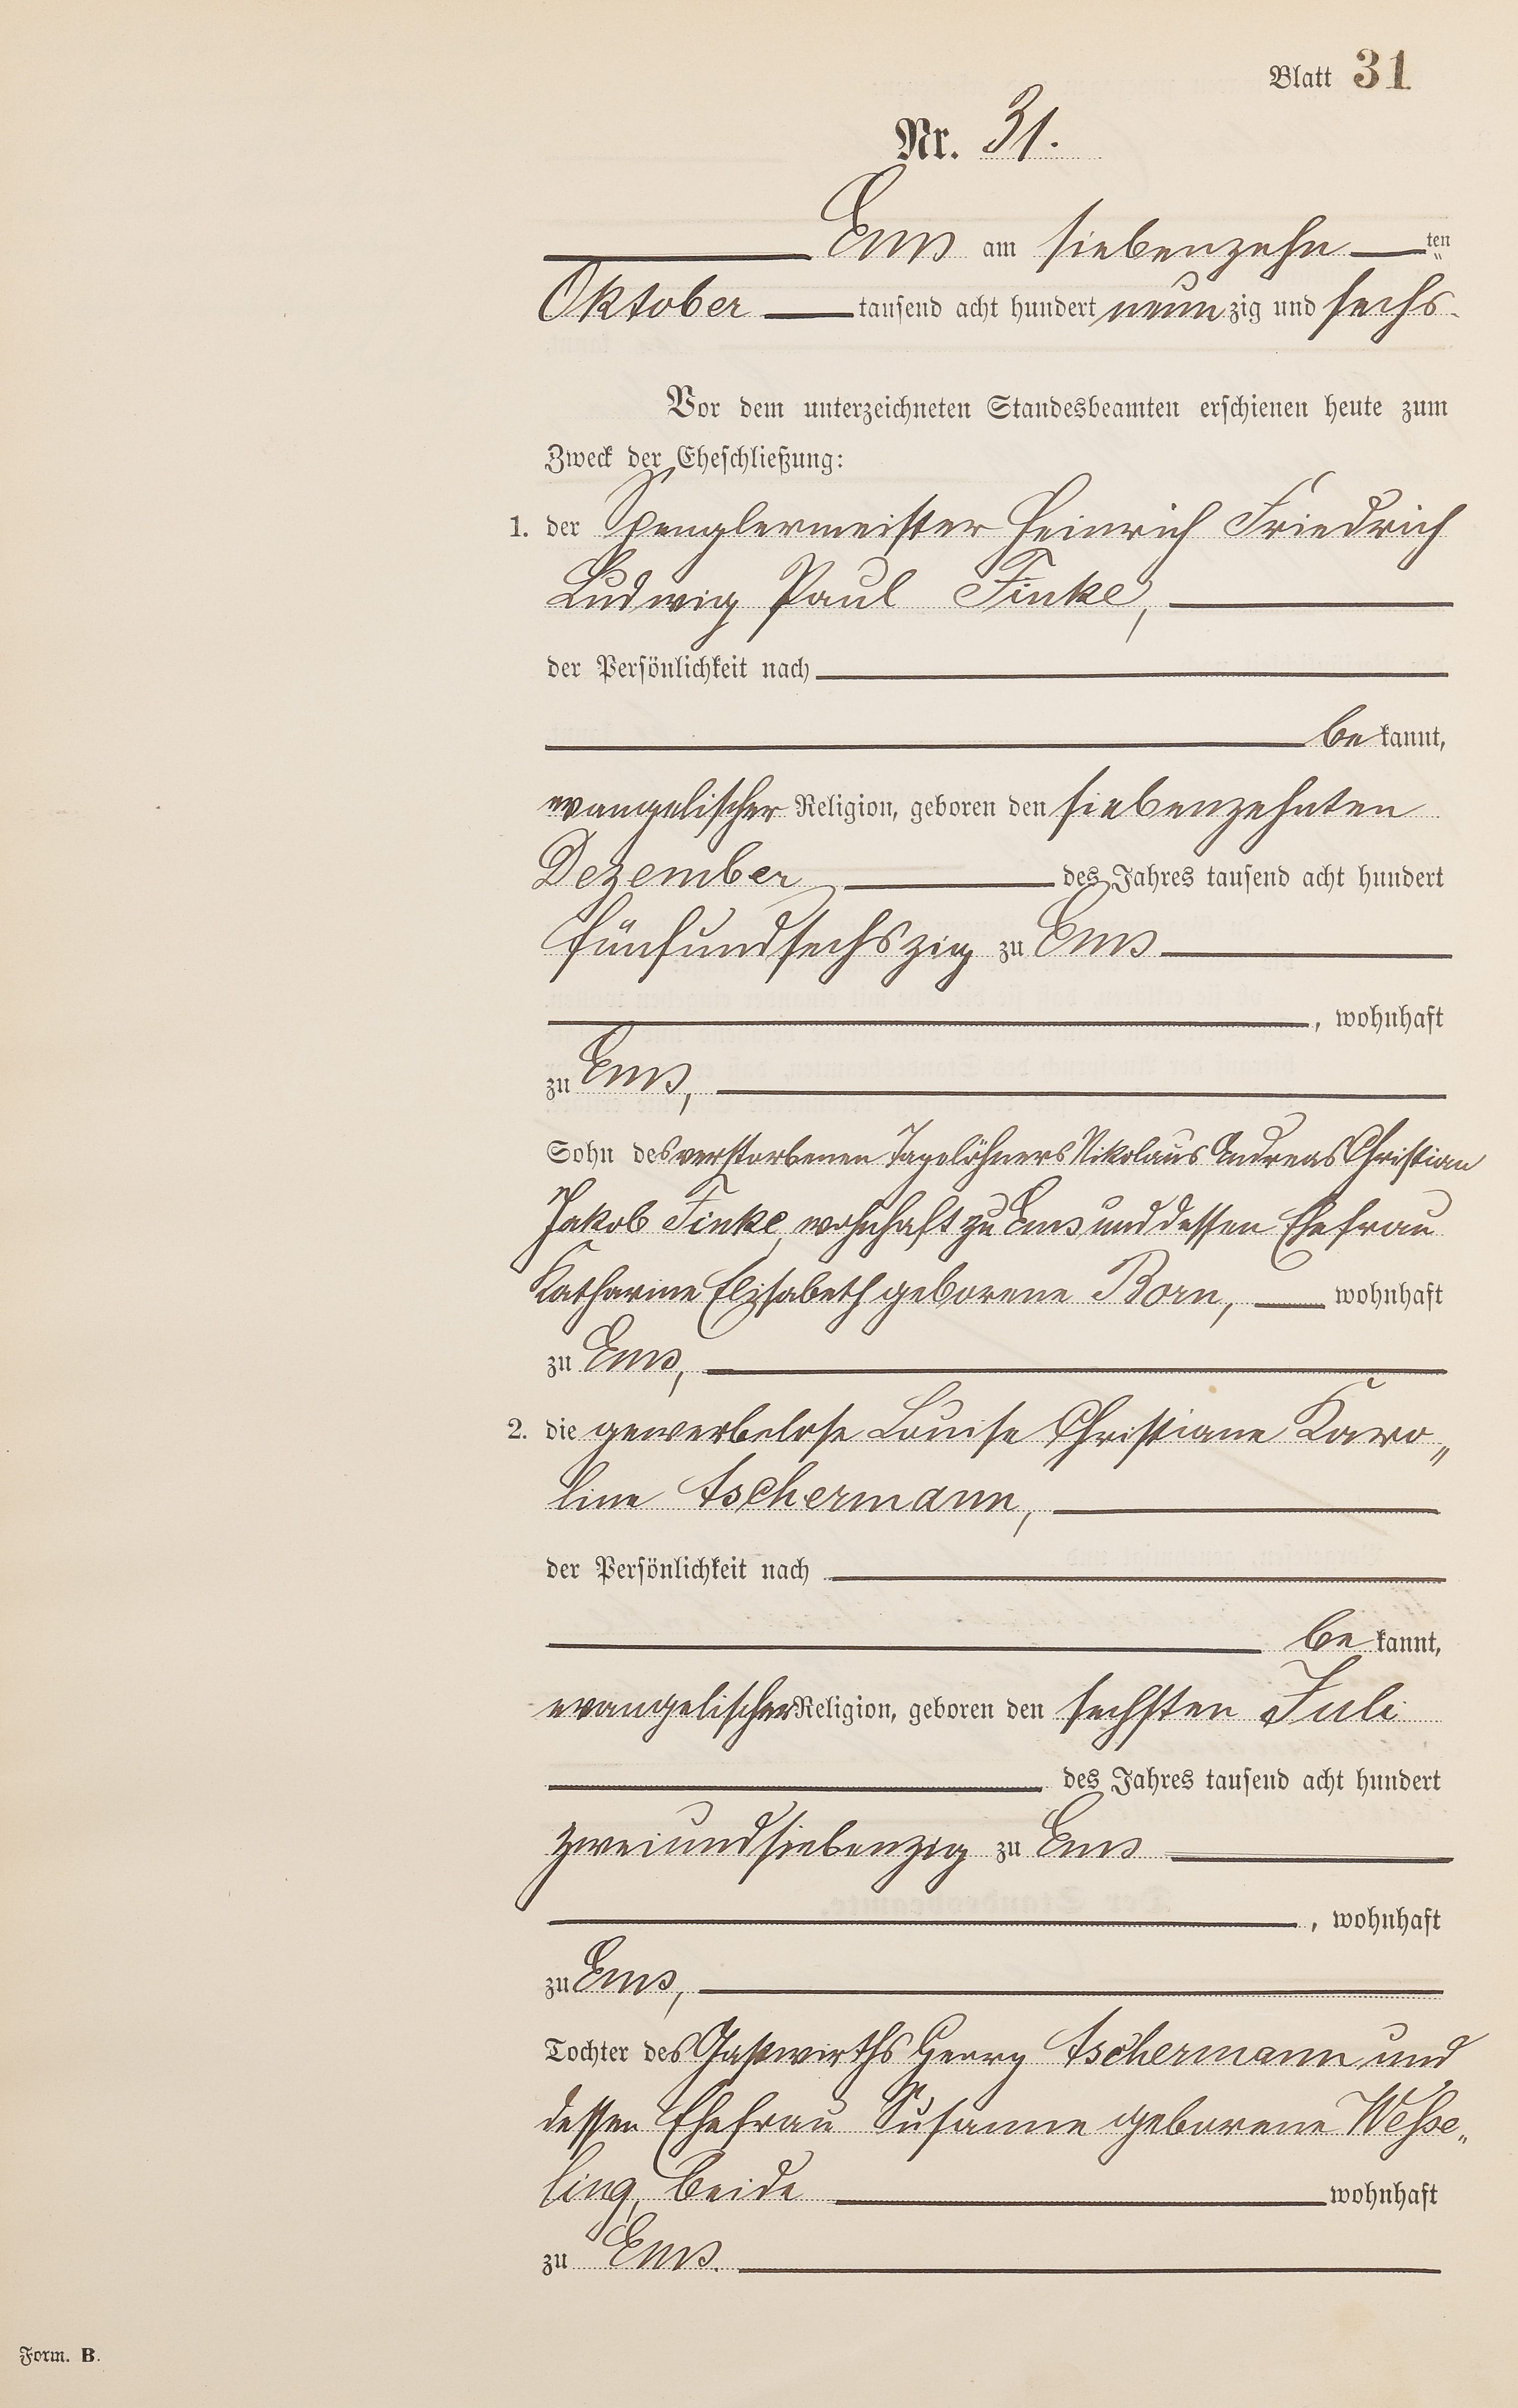 Blatt 31
Nr. 31.
Ems am siebenzehn ten
Oktober tausend acht hundert neun zig und sechs.
Vor dem unterzeichneten Standesbeamten erschienen heute zum
Zweck der Eheschließung:
1. der Spenglermeister Heinrich Friedrich
Ludwig Paul Finke,
der Persönlichkeit nach
be kannt,
evangelischer Religion, geboren den siebenzehnten
Dezember des Jahres tausend acht hundert
fünfundsechszig zu Ems
, wohnhaft
zu Ems,
Sohn des verstorbenen Tagelöhners Nikolaus Andreas Christian
Jakob Finke, wohnhaft zu Ems und dessen Ehefrau
Katharine Elisabeth geborene Born, wohnhaft
zu Ems,
2. die gewerbelose Louise Christiane Karo„
line Aschermann,
der Persönlichkeit nach
be kannt,
evangelischer Religion, geboren den sechsten Juli
des Jahres tausend acht hundert
zweiundsiebenzig zu Ems
, wohnhaft
zu Ems,
Tochter des Gastwirths Georg Aschermann und
dessen Ehefrau Susanne geborene Wesse„
ling, beide wohnhaft
zu Ems.
Form. B.